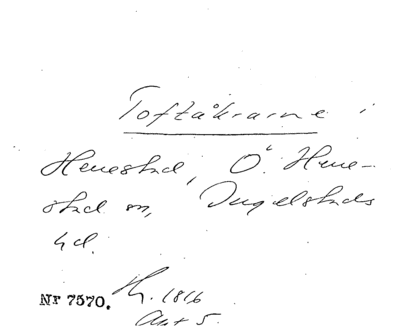 Toftåkrarne i
Herrestad, Ö. Herre-
stad sn, Ingelstads
hd.
Nr 7570. H. 1816
Akt 5.